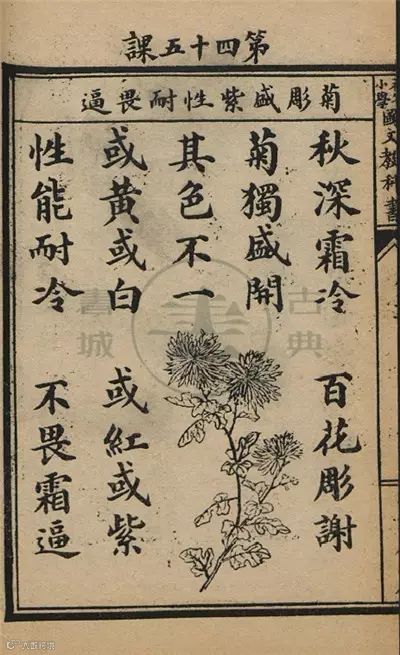 第四十五課
菊彫盛紫性耐畏逼
小學國文教科書
秋深霜冷 百花彫謝
菊獨盛開
其色不一
或黃或白 或紅或紫
性能耐冷 不畏霜逼
古典
書城